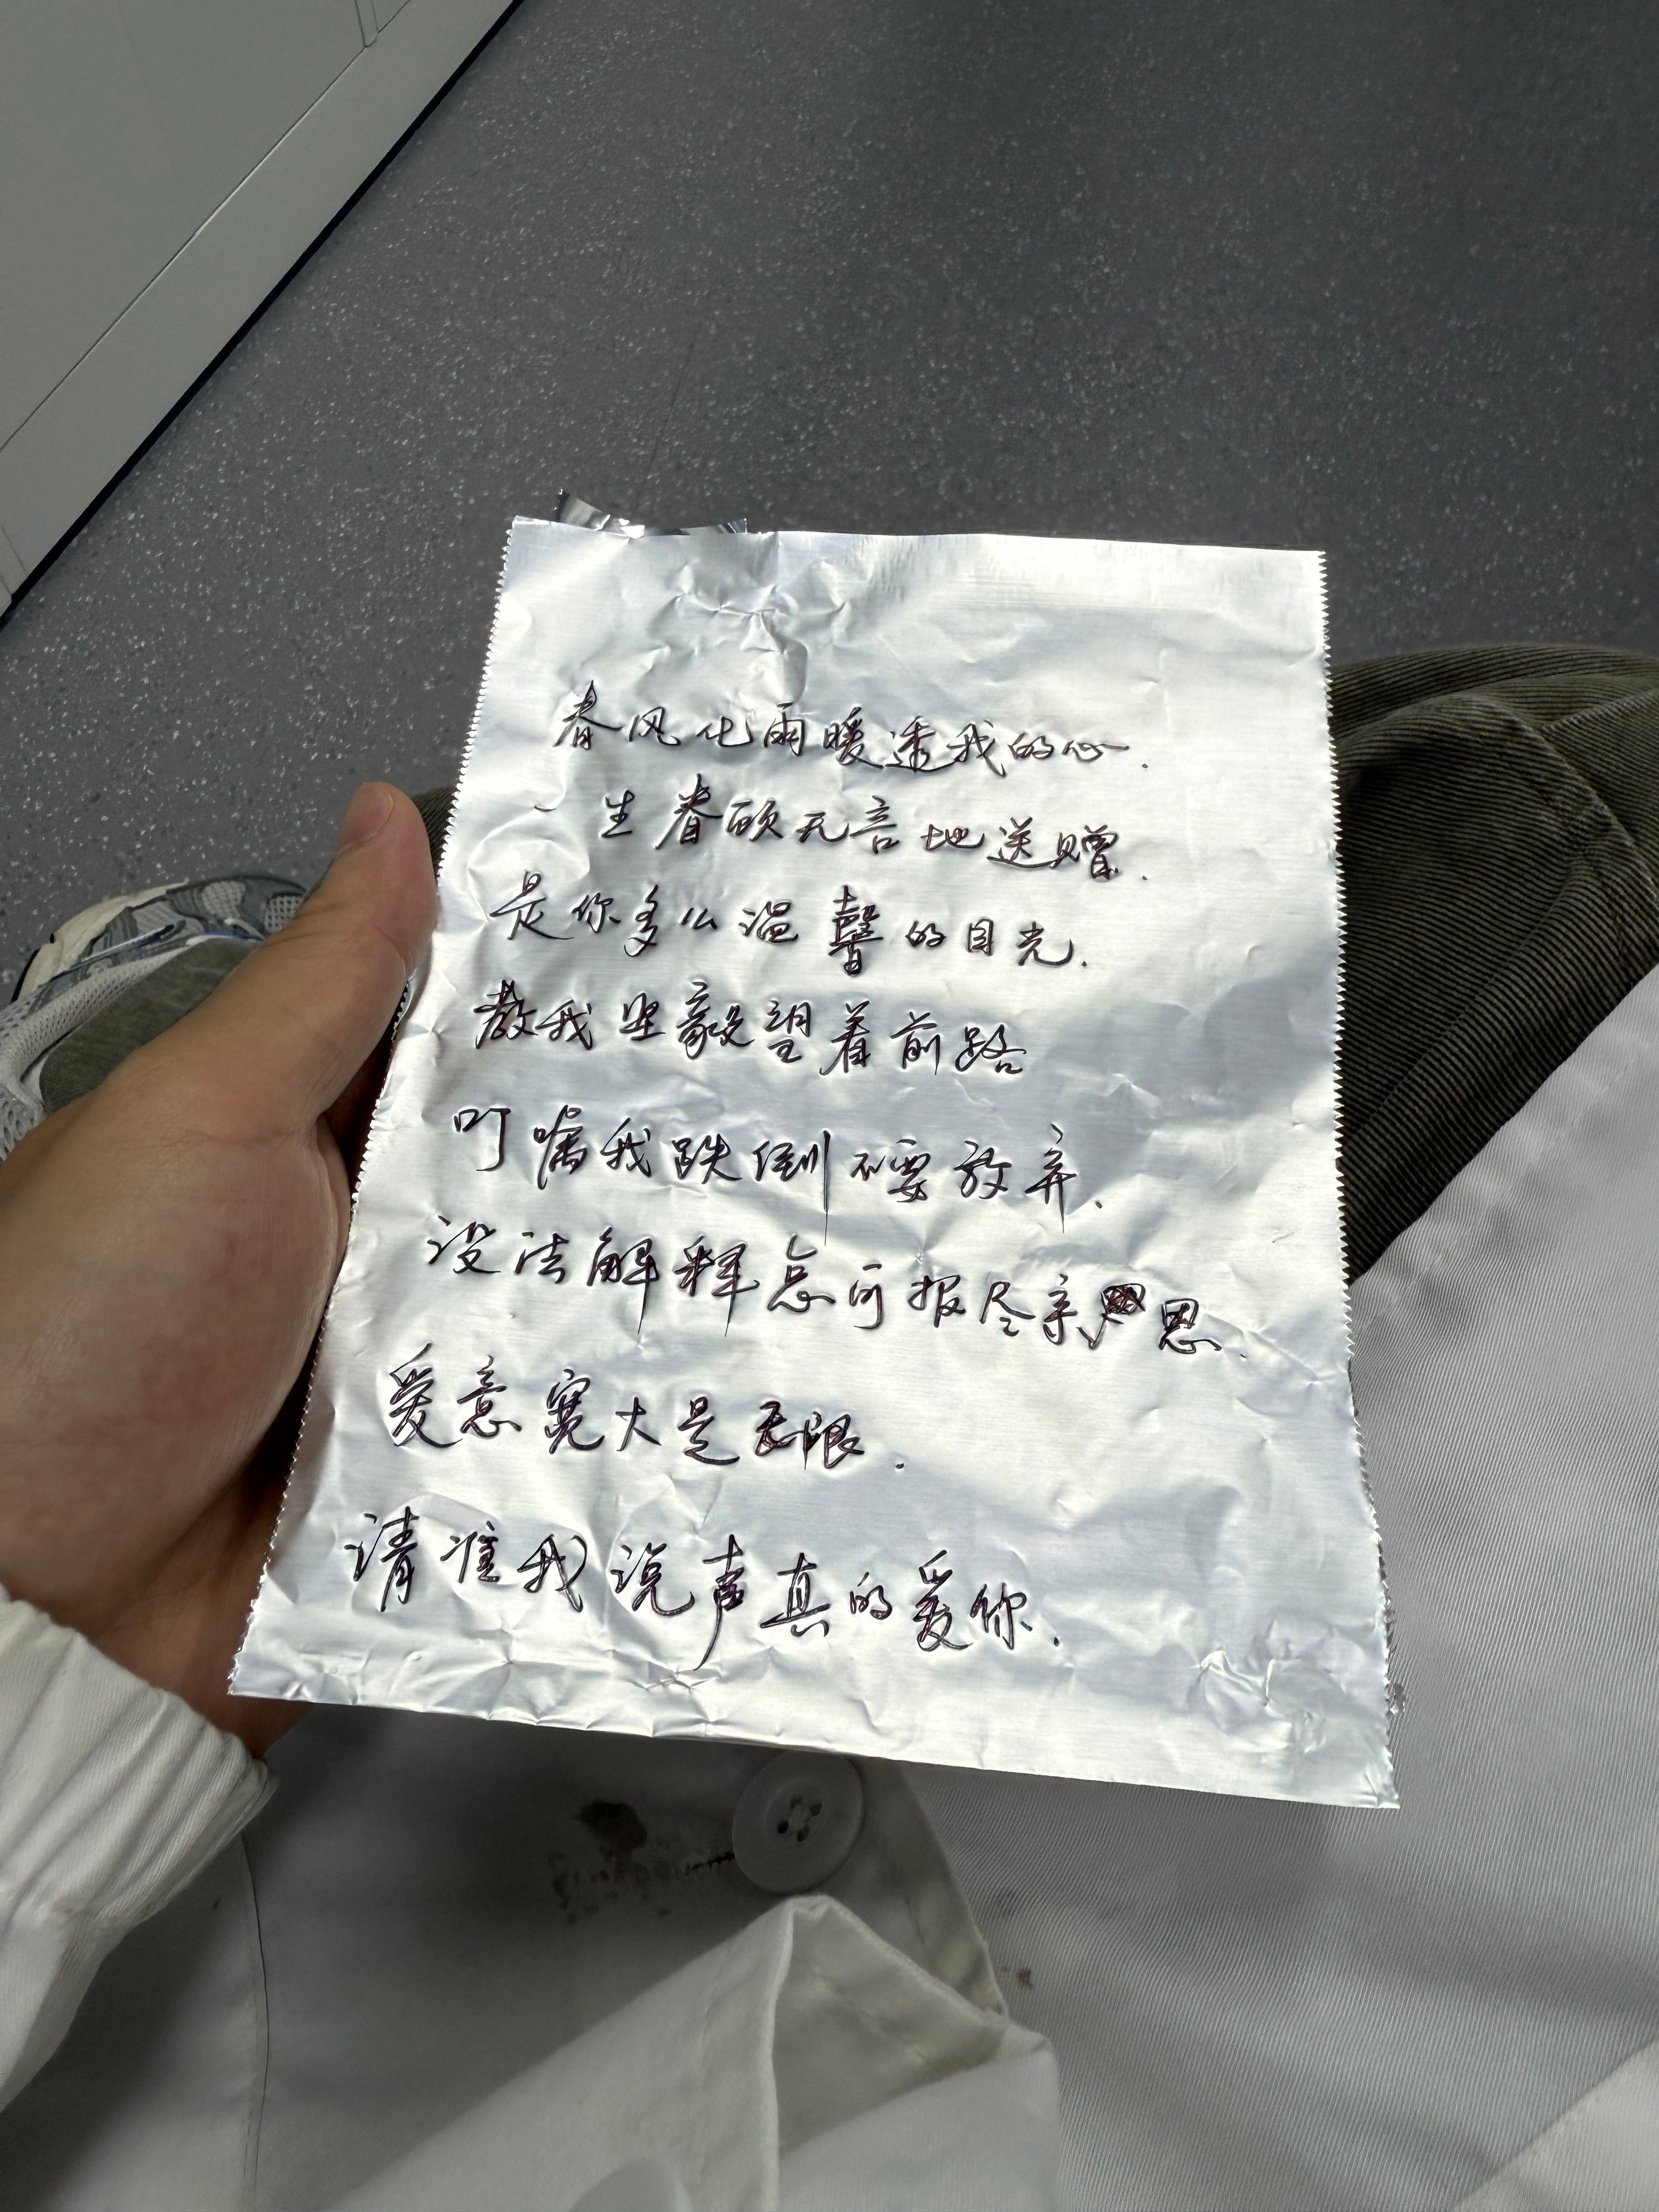 春风化雨暖透我的心.
一生眷顾无言地送赠.
是你多么温馨的目光.
教我坚毅望着前路
叮嘱我跌倒不要放弃.
没法解释怎可报尽亲恩.
爱意宽大是无限.
请准我说声真的爱你.